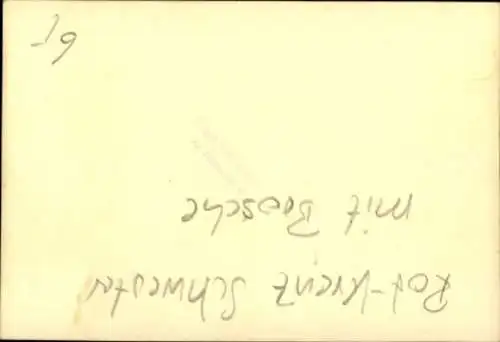 Rot-Kreuz Schwester
mit Brosche
6,-